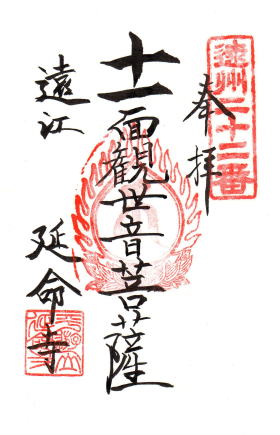 遠州二十二番
奉拝
十一面観世音菩薩
遠江
延命寺